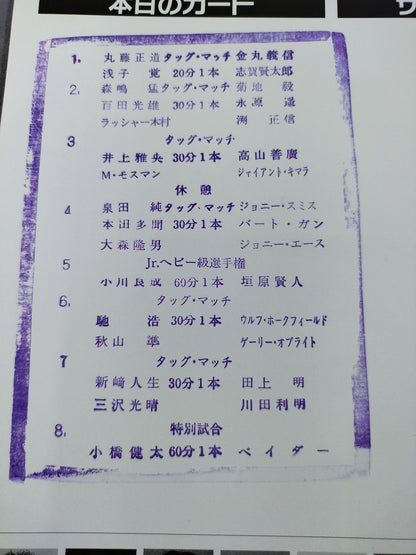 本日のカード
1. 丸藤正道 タッグ・マッチ 金丸義信
浅子 覚 20分1本 志賀賢太郎
2. 森嶋 猛 タッグ・マッチ 菊地 毅
百田光雄 30分1本 永源 遥
ラッシャー木村 渕 正信
3 タッグ・マッチ
井上雅央 30分1本 高山善廣
M・モスマン ジャイアント・キマラ
休憩
4 泉田 純 タッグ・マッチ ジョニー・スミス
本田多聞 30分1本 バート・ガン
大森隆男 ジョニー・エース
5 Jr.ヘビー級選手権
小川良成 60分1本 垣原賢人
6. タッグ・マッチ
馳 浩 30分1本 ウルフ・ホークフィールド
秋山 準 ゲーリー・オブライト
7 タッグ・マッチ
新崎人生 30分1本 田上 明
三沢光晴 川田利明
8. 特別試合
小橋健太 60分1本 ベイダー